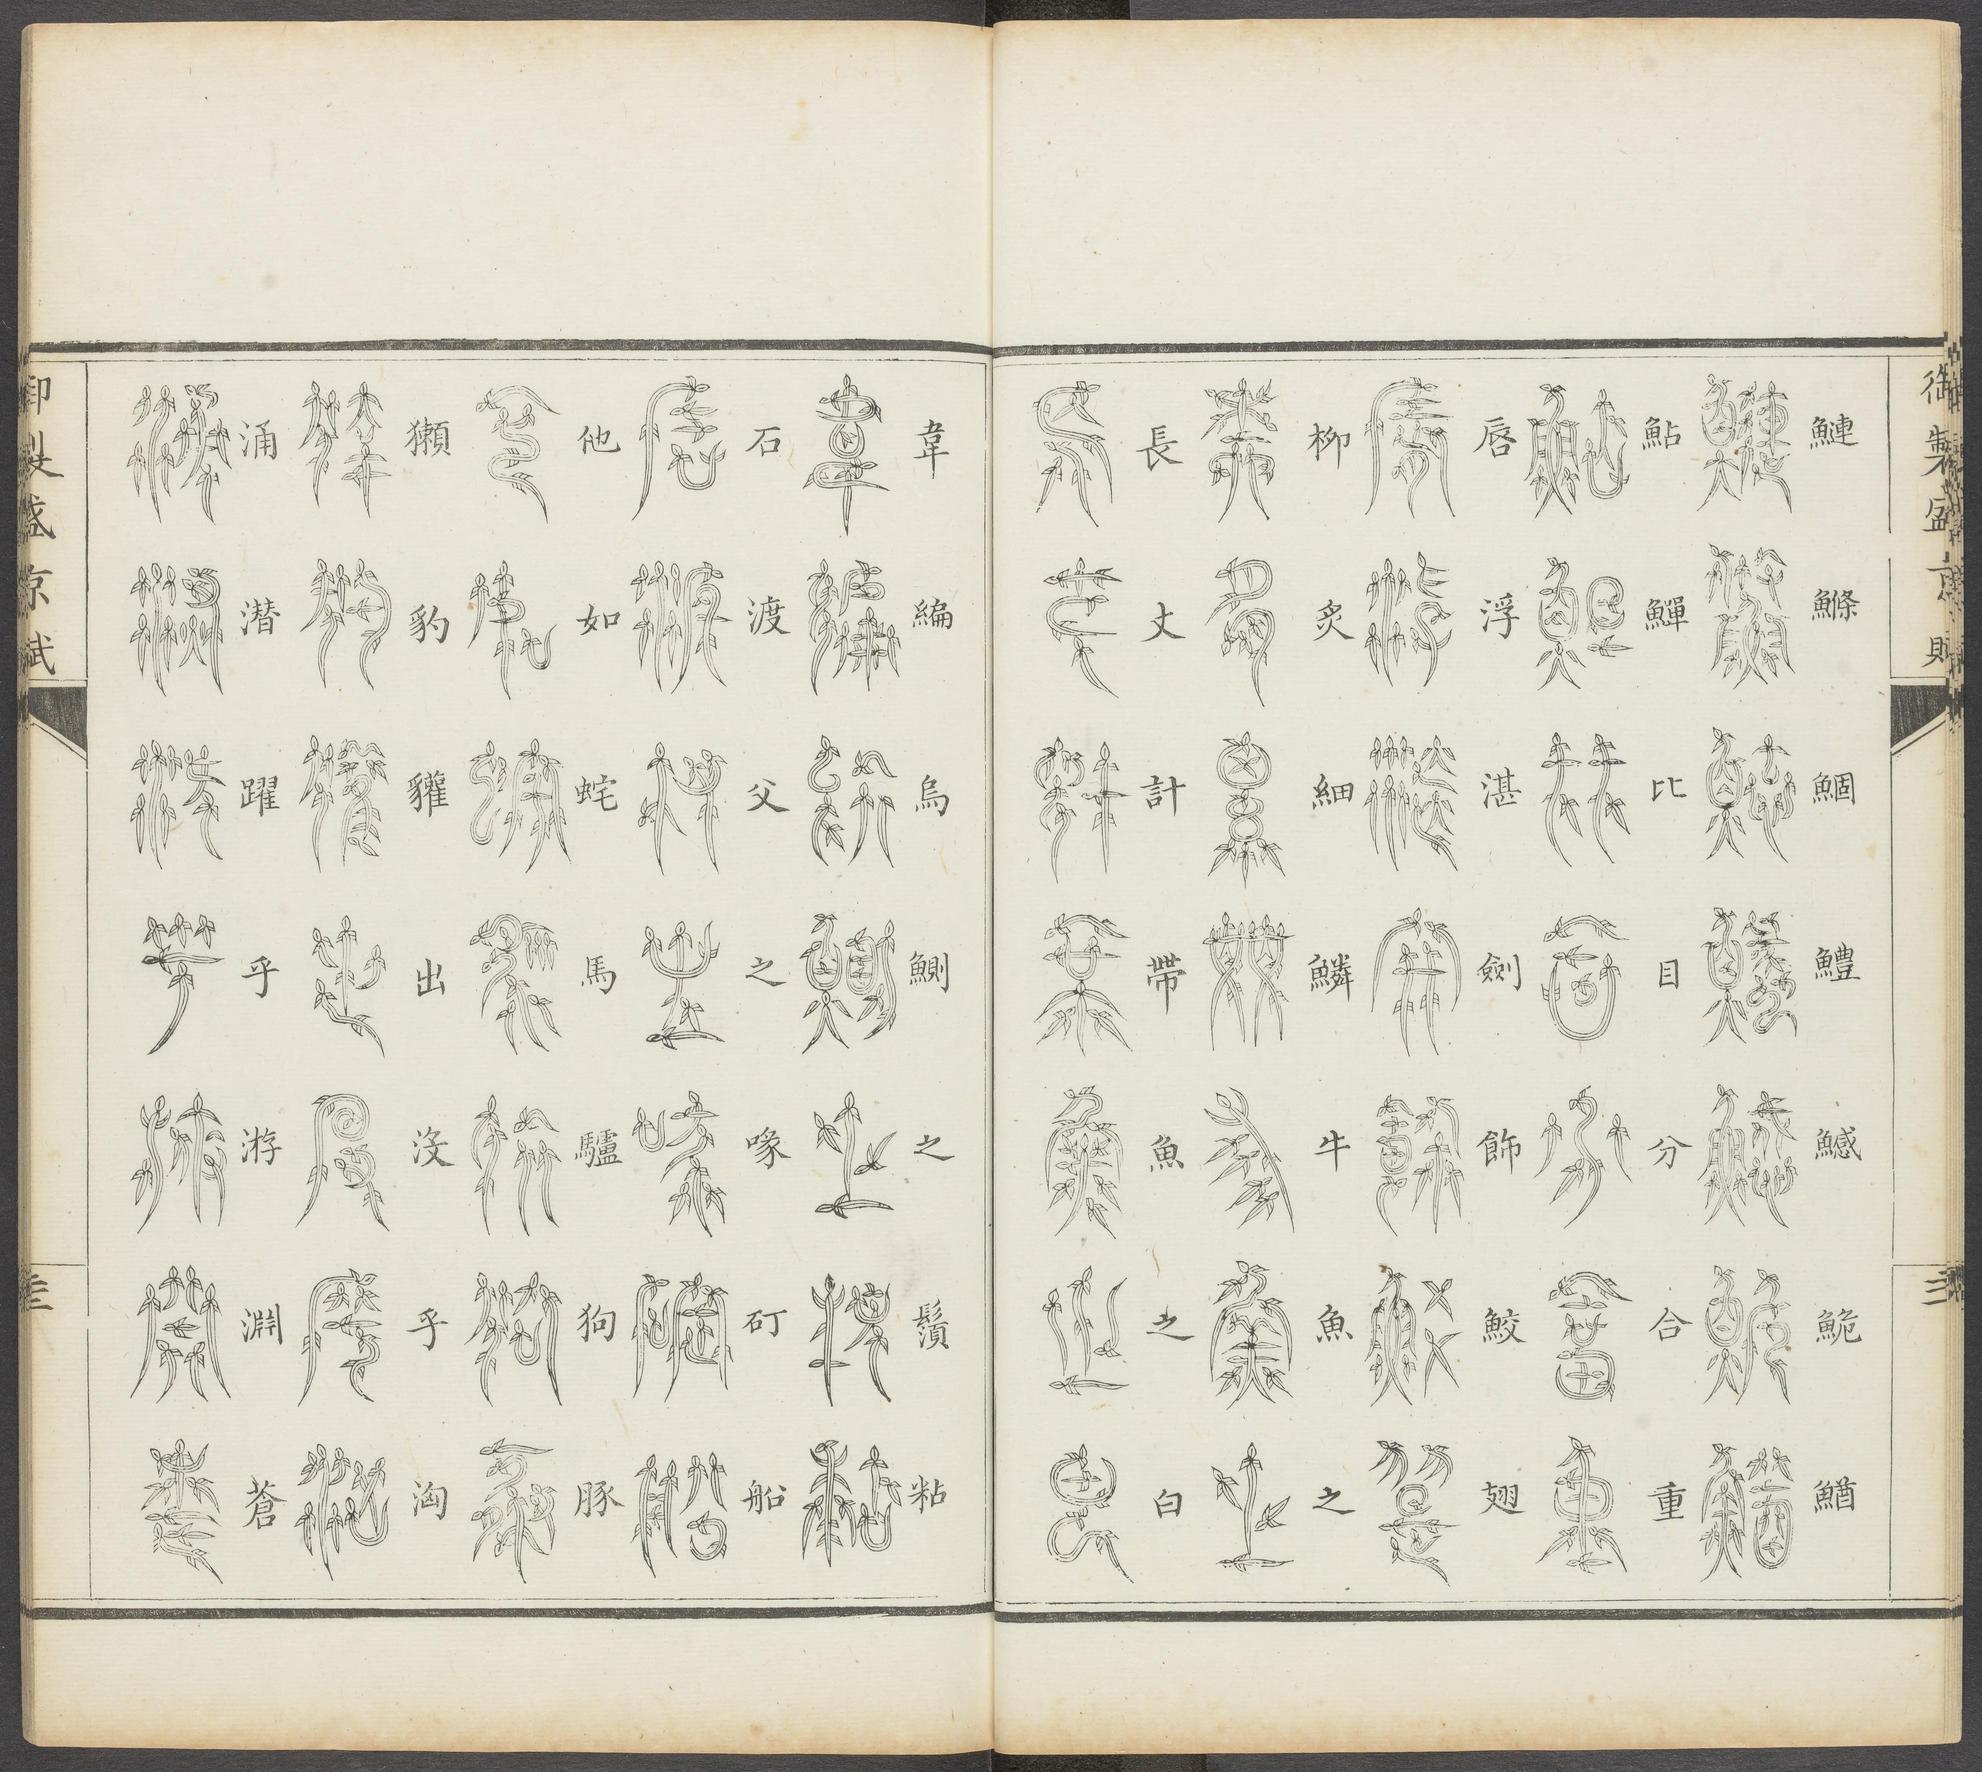 御製盛京賦
鰱鰷鯝鱧鱤鮠鰌
鮎鱓比目分合重
唇浮湛劍飾鮫翅
柳炙細鱗牛魚之
長丈計帶魚之白
韋編烏鰂之鬚粘
石渡父之喙矴船
他如蛇馬驢狗豚
獺豹貛出沒乎洶
涌潛躍乎游淵蒼
御製盛京賦